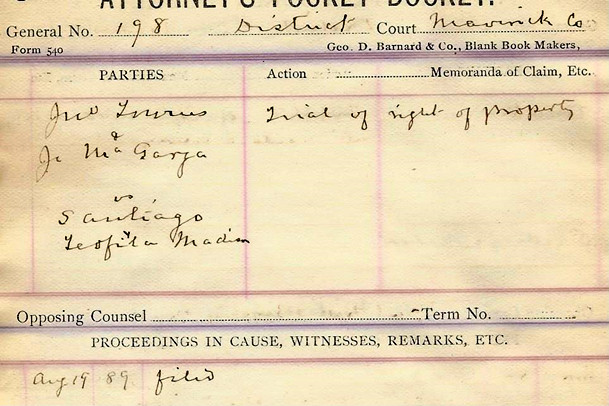 ATTORNEY'S POCKET DOCKET.
General No. 198 District Court Maverick Co
Form 540 Geo. D. Barnard & Co., Blank Book Makers,
PARTIES Action Memoranda of Claim, Etc.
Jno Trial of right of property
& 
Jo Ma Garza
vs
Santiago
Teofila
Opposing Counsel Term No.
PROCEEDINGS IN CAUSE, WITNESSES, REMARKS, ETC.
Aug 19 89 filed